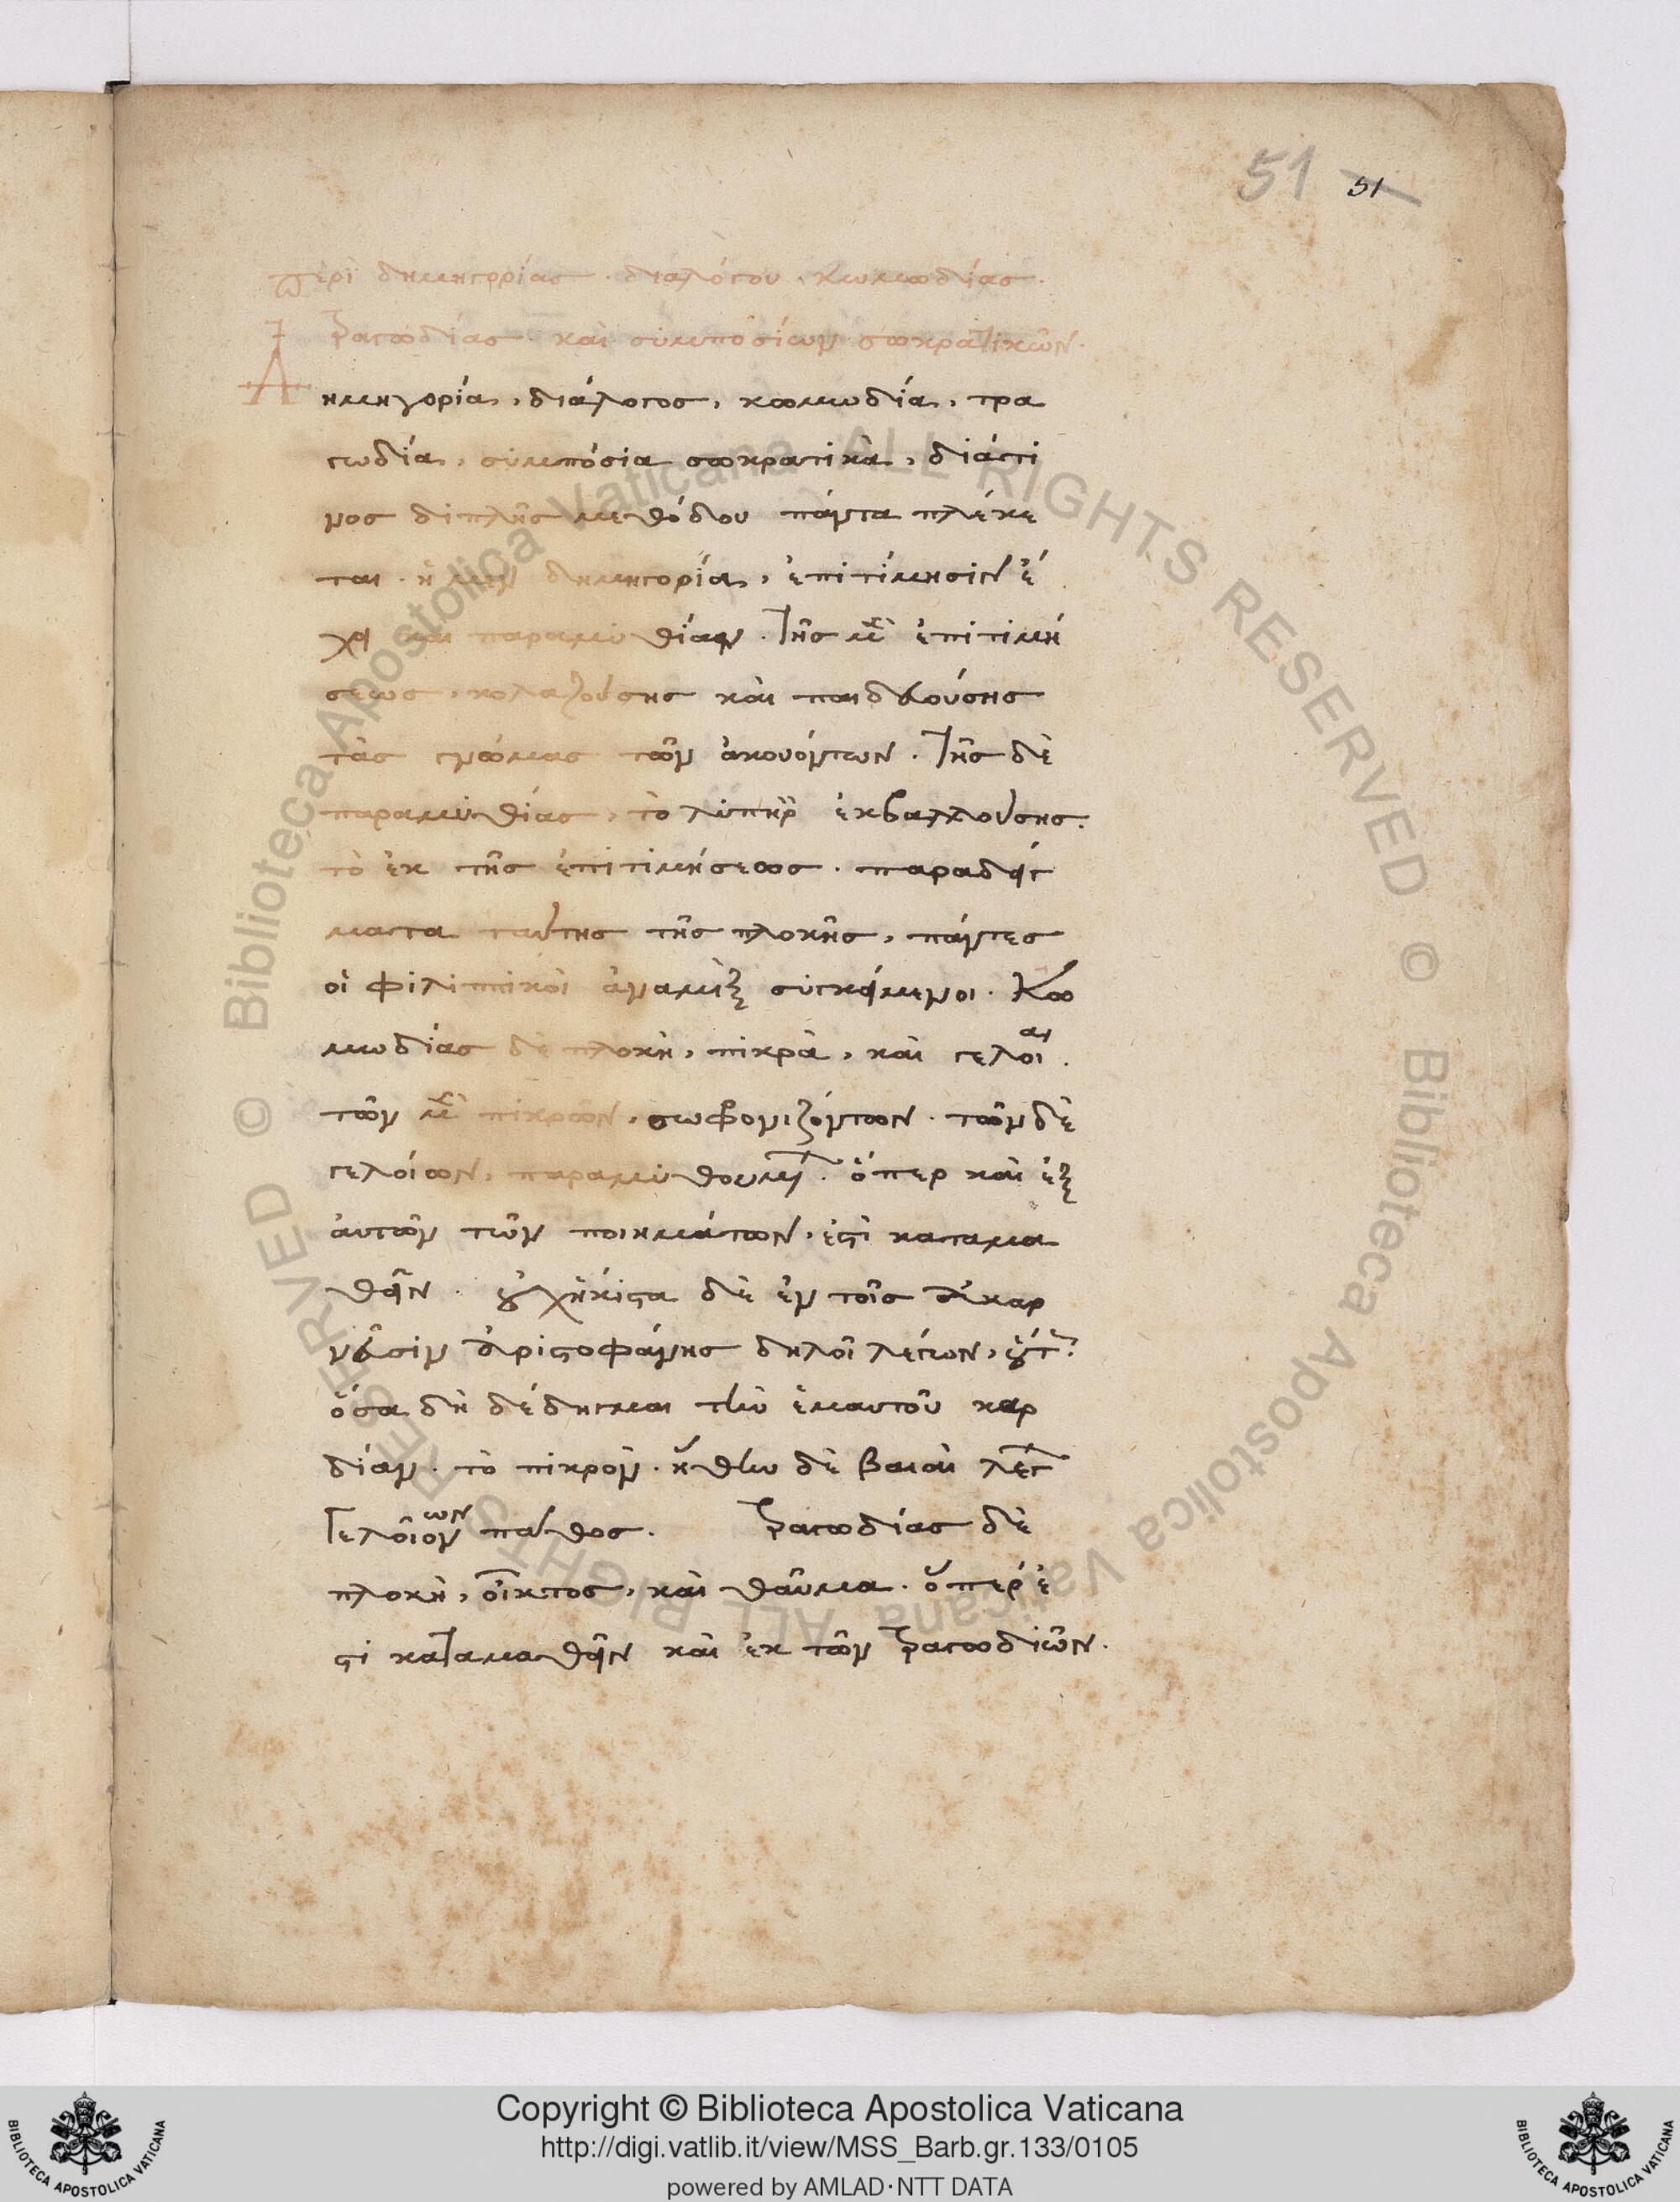 51 51
περὶ δημηγορίας · διαλόγου · κωμωδίας ·
τραγωδίας · καὶ συμποσίων σωκρατικῶν ·
Δημηγορία, διάλογος, κωμωδία, τρα
γωδία, συμπόσια σωκρατικὰ, διά τι
νος διπλῆς μεθόδου πάντα πλέκε
ται · ἡ μὲν δημηγορία, ἐπιτίμησιν ἔ
χει καὶ παραμυθίαν · τῆς μὲν ἐπιτιμή
σεως, κολαζούσης καὶ παιδευούσης
τὰς γνώμας τῶν ἀκουόντων · τῆς δὲ
παραμυθίας, τὸ λυπηρὸν ἐκβαλλούσης ·
τὸ ἐκ τῆς ἐπιτιμήσεως · παραδείγ
ματα ταύτης τῆς πλοκῆς, πάντες
οἱ φιλιππικοὶ ἀναμὶξ συγκείμενοι · Κω
μωδίας δὲ πλοκὴ, πικρὰ, καὶ γελοῖαι ·
τῶν μὲν πικρῶν, σωφρονιζόντων · τῶν δὲ
γελοίων, παραμυθουμένων · ὅπερ καὶ ἐξ
αὐτῶν τῶν ποιημάτων, ἐστὶ καταμα
θεῖν · οὐχήκιστα δὲ ἐν τοῖς Ἀχαρ
νεῦσιν Ἀριστοφάνης δηλοῖ λέγων, οὕτως ·
ὅσα δὴ δέδηγμαι τὴν ἐμαυτοῦ καρ
δίαν · τὸ πικρὸν · ἥσθην δὲ βαιαὶ λέγ
Γελοῖον ων πάθος · τραγωδίας δὲ
πλοκὴ, οἶκτος, καὶ θαῦμα · ὅπερ ἐ
στι καταμαθεῖν καὶ ἐκ τῶν τραγωδιῶν ·
© Biblioteca Apostolica Vaticana ALL RIGHTS RESERVED © Biblioteca Apostolica Vaticana ALL RIGHTS RESERVED
Copyright © Biblioteca Apostolica Vaticana
http://digi.vatlib.it/view/MSS_Barb.gr.133/0105
powered by AMLAD·NTT DATA
BIBLIOTECA APOSTOLICA VATICANA
BIBLIOTECA APOSTOLICA VATICANA